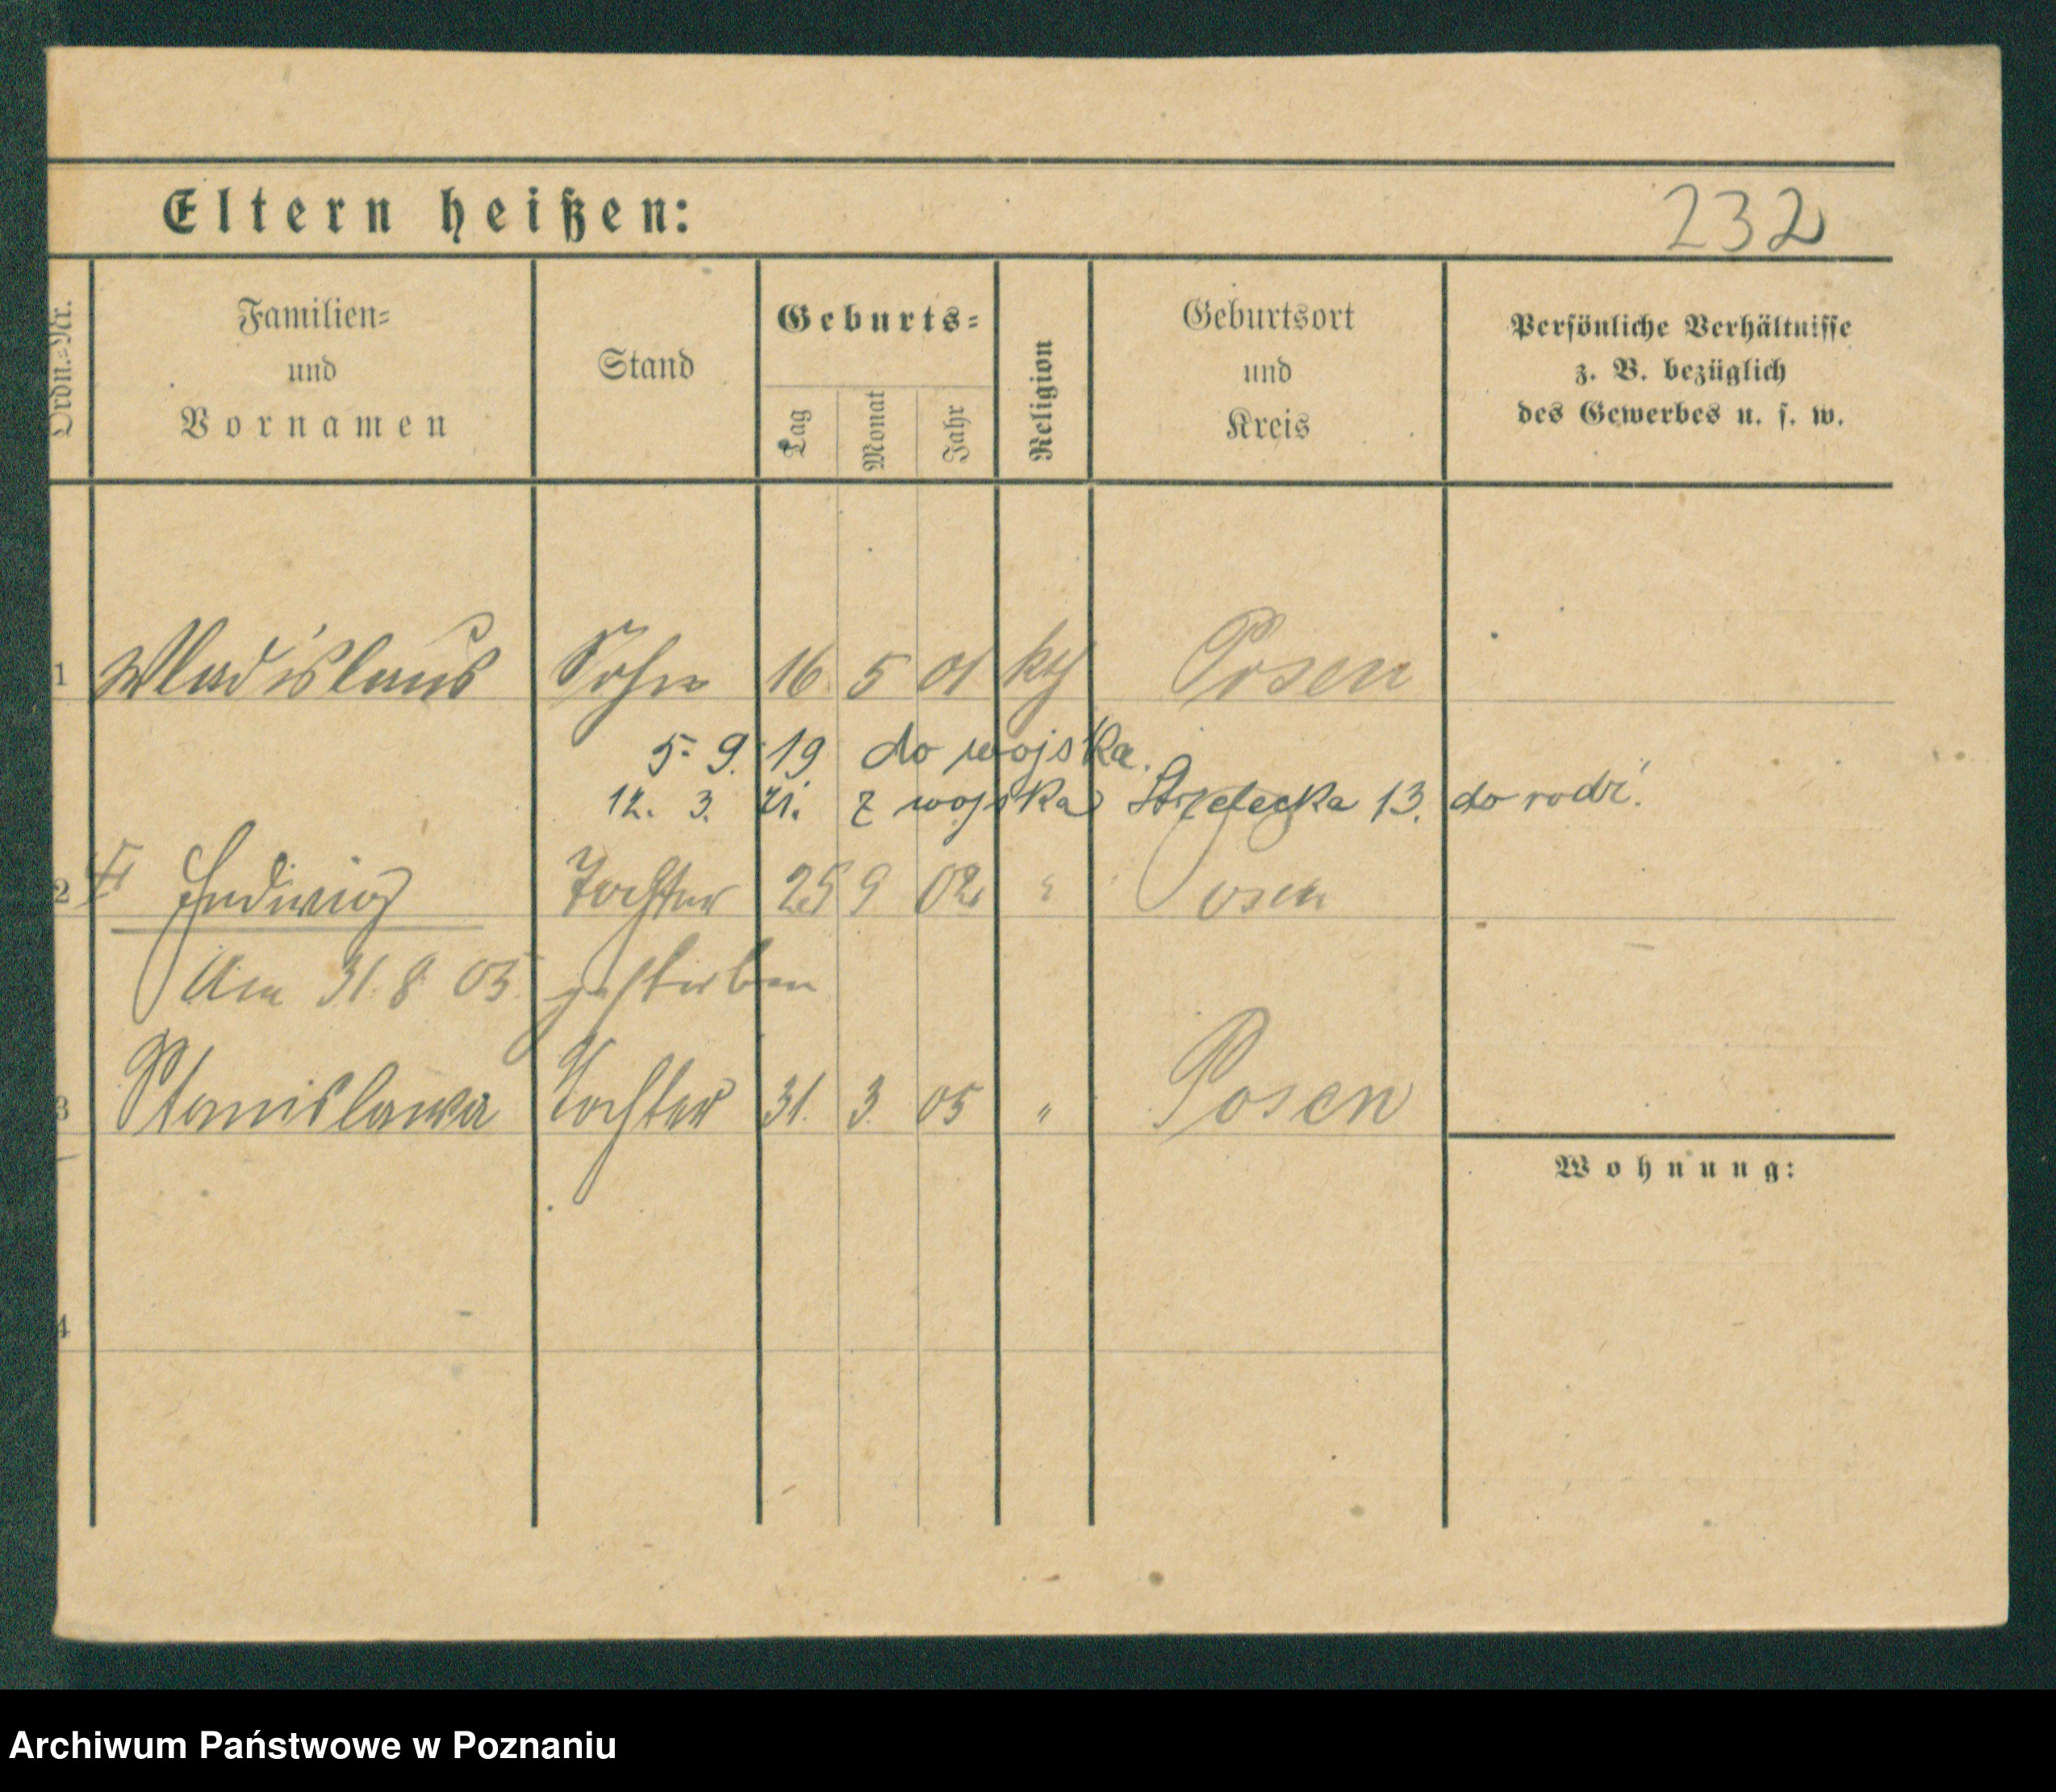 Eltern heißen:
232
Ordn.-Nr.
Familien-
und
Vornamen
Stand
Geburts-
Tag
Monat
Jahr
Religion
Geburtsort
und
Kreis
Persönliche Verhältnisse
z. B. bezüglich
des Gewerbes u. s. w.
1 Wladislaus Sohn 16. 5 01 kth Posen
5. 9. 19 do wojska.
12. 3. 21. z wojska Strzelecka 13. do rodz.
2 Hedwig Tochter 25 9 02 " Posen
Am 31. 8. 05. gestorben
3 Stanislawa Tochter 31. 3. 05 " Posen
Wohnung:
4
Archiwum Państwowe w Poznaniu